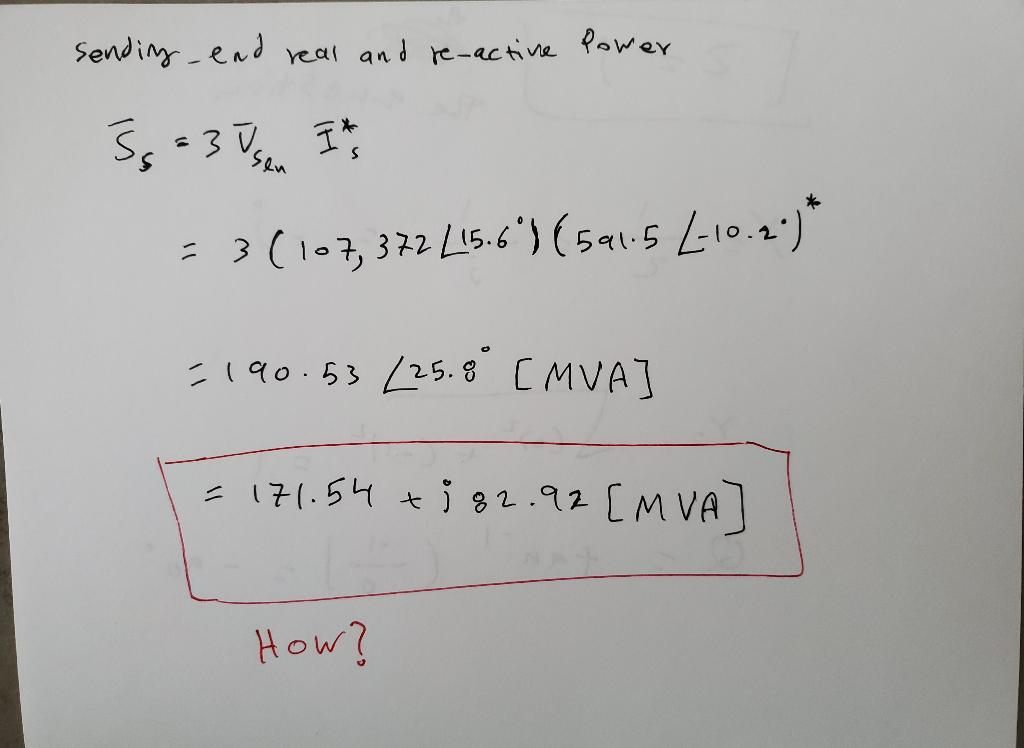 Sending-end real and re-active Power
S̅s = 3 V̅sen I̅*s
= 3 (107,372 ∠15.6°) (591.5 ∠-10.2°)*
= 190.53 ∠25.8° [MVA]
= 171.54 + j 82.92 [MVA]
How?